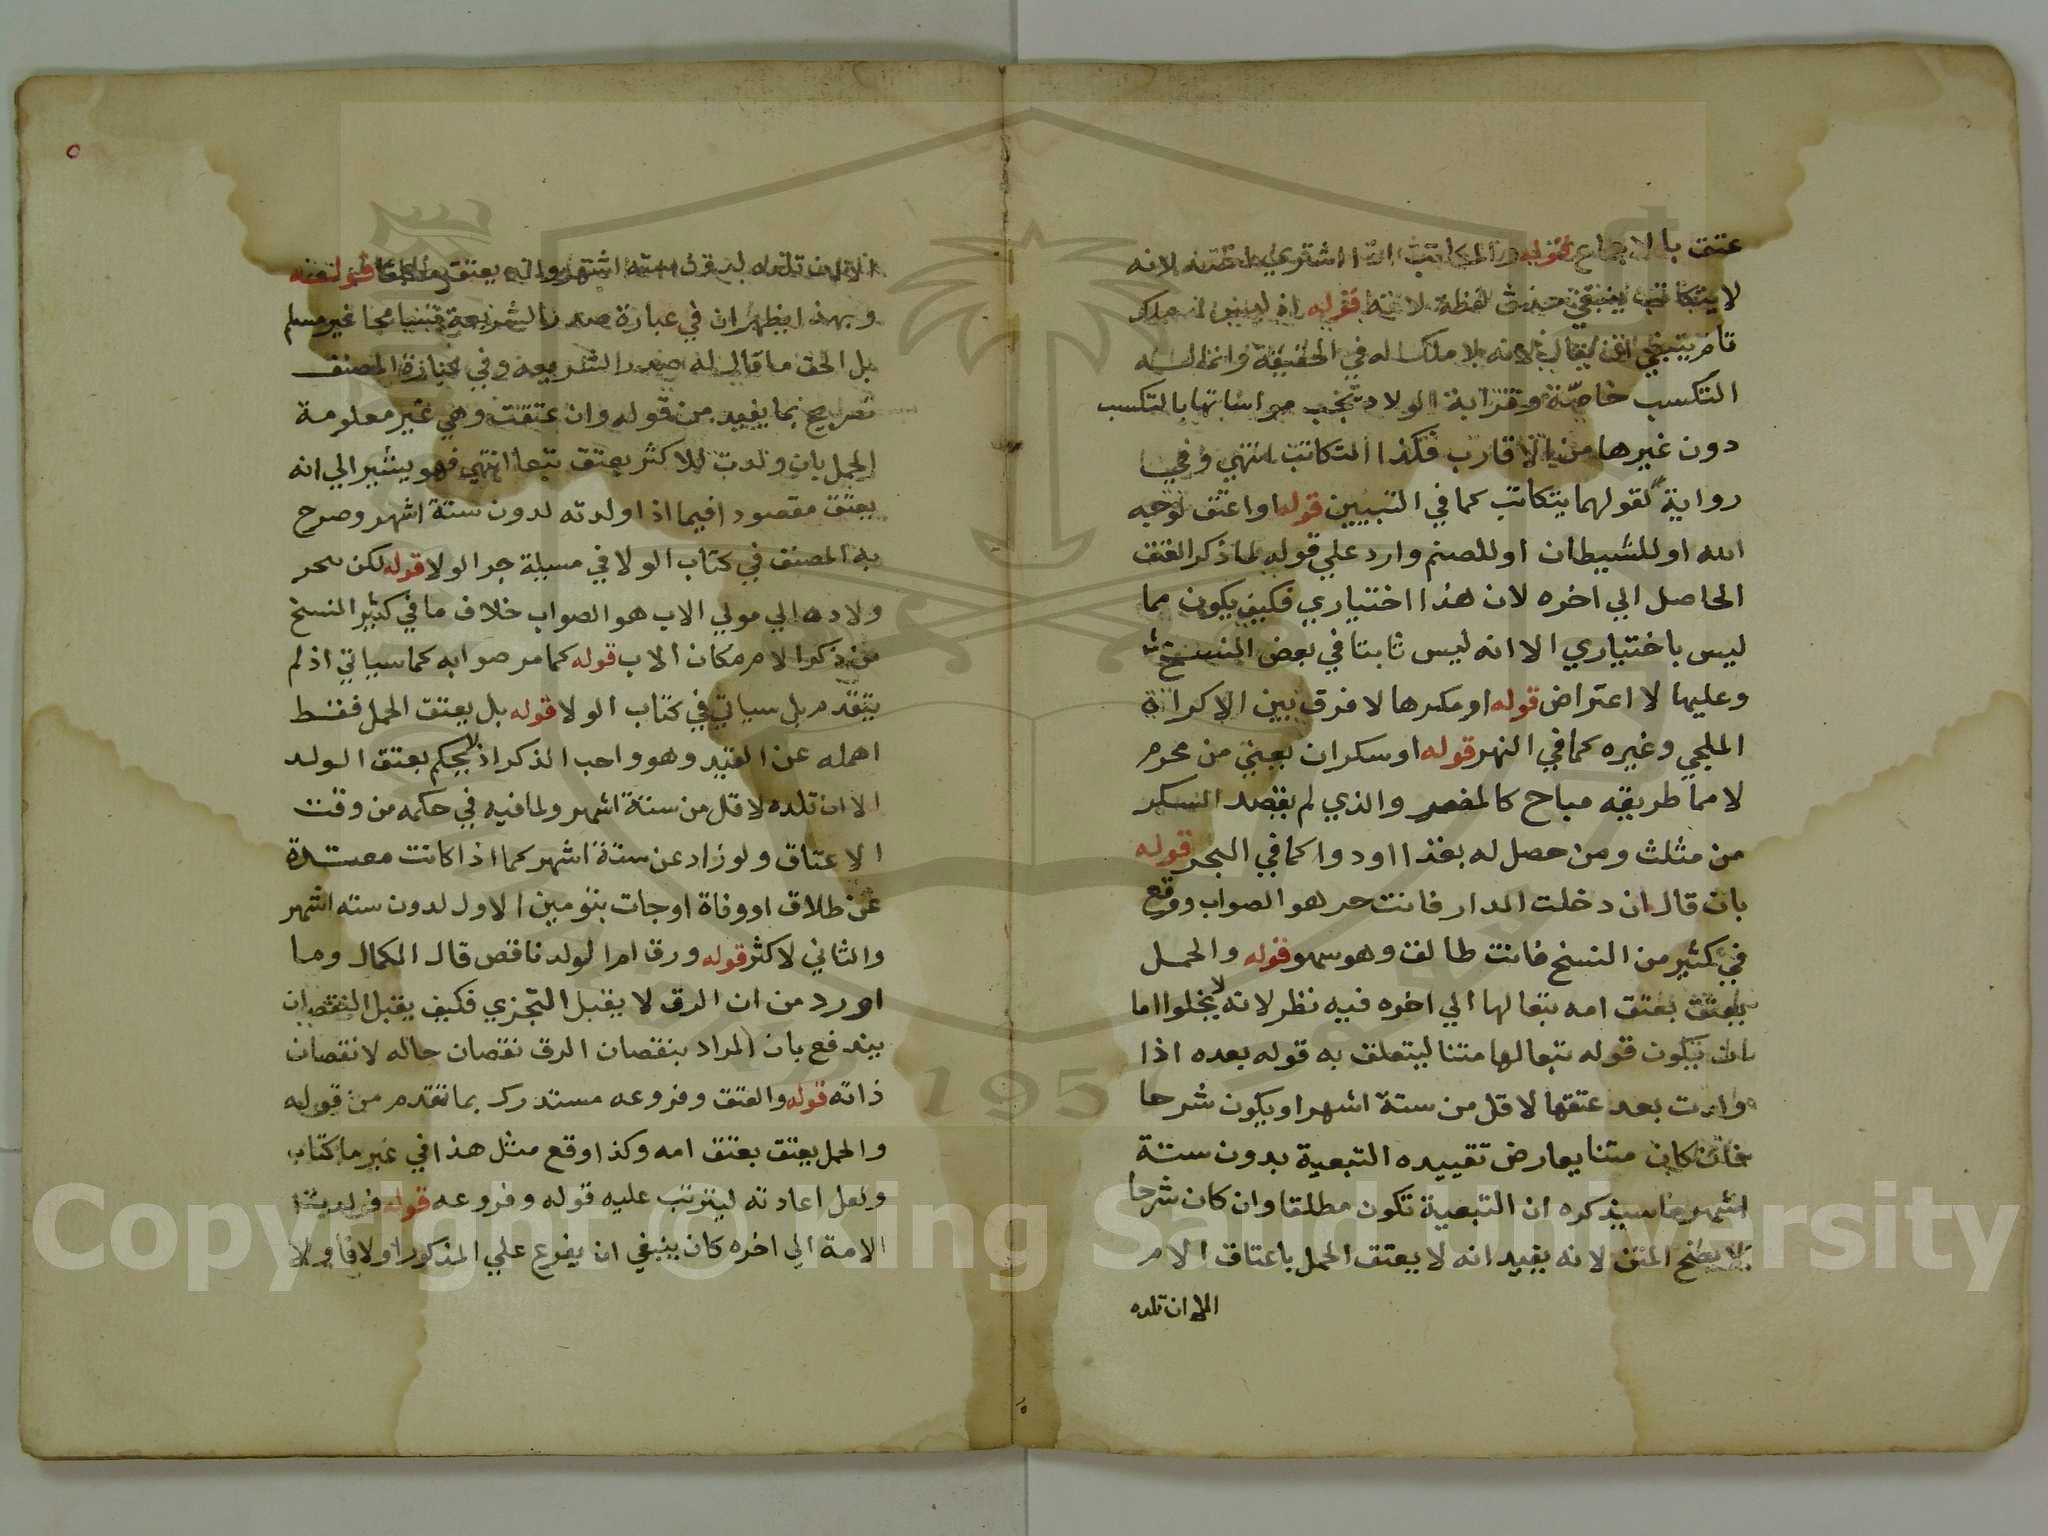 عتق بالاجماع قوله والمكاتب اذا اشتري لانه
لا يتكاتب ينبغي حذف لفظة لا قوله اذ ليس له ملك
تام ينبغي ان يقال لانه لا ملك له في الحقيقة وانما له
التكسب خاصة وقرابة الولاد تجب مواساتها بالتكسب
دون غيرها من الاقارب فكذا التكاتب انتهي وفي
رواية كقولهما يتكاتب كما في التبيين قوله او اعتق لوجه
الله او للشيطان او للصنم وارد علي قوله لما ذكر العتق
الحاصل الي اخره لان هذا اختياري فكيف يكون مما
ليس باختياري الا انه ليس ثابتا في بعض النسخ
وعليها لا اعتراض قوله او مكرها لا فرق بين الاكراه
الملجي وغيره كما في النهر قوله او سكران يعني من محرم
لا مما طريقه مباح كالمضطر والذي لم يقصد السكر
من مثلث ومن حصل له بغذا او دوا كما في البحر قوله
بان قال ان دخلت الدار فانت حر هو الصواب ووقع
في كثير من النسخ فانت طالق وهو سهو قوله والحمل
يعتق بعتق امه تبعا لها الي اخره فيه نظر لانه لا يخلوا اما
ان يكون قوله تبعا لها متنا ليتعلق به قوله بعده اذا
ولدت بعد عتقها لاقل من ستة اشهر او يكون شرحا
فان كان متنا يعارض تقييده التبعية بدون ستة
اشهر ما سيذكره ان التبعية تكون مطلقا وان كان شرحا
لا يصح المتن لانه يفيد انه لا يعتق الحمل باعتاق الام
الا ان تلده
الا ان تلده ستة اشهر وانه يعتق مطلقا
وبهذا يظهر ان في عبارة صدر الشريعة تسامحا غير مسلم
بل الحق ما قال له صدر الشريعه وفي عبارة المصنف
تصريح بما يفيد من قوله وان عتقت وهي غير معلومة
الحمل بان ولدت للاكثر يعتق تبعا انتهي فهو يشير الي انه
يعتق مقصودا فيما اذا ولدته لدون ستة اشهر وصرح
به المصنف في كتاب الولا في مسيلة جر الولا قوله لكن يجر
ولاده الي مولي الاب هو الصواب خلاف ما في كثير النسخ
من ذكر الام مكان الاب قوله كما مر صوابه كما سياتي اذ لم
يتقدم بل سياتي في كتاب الولا قوله بل يعتق الحمل فقط
اهمله عن القيد وهو واجب الذكر اذ لا يحكم بعتق الولد
الا ان تلده لاقل من ستة اشهر ولما فيه في حكمه من وقت
الاعتاق ولو زاد عن ستة اشهر كما اذا كانت معتدة
عن طلاق او وفاة او جات بتومين الاول لدون سته اشهر
والثاني لاكثر قوله ورق ام الولد ناقص قال الكمال وما
اورد من ان الرق لا يقبل التجزي فكيف يقبل النقصان
يندفع بان المراد بنقصان الرق نقصان حاله لا نقصان
ذاته قوله والعتق وفروعه مستدرك بما تقدم من قوله
والحمل يعتق بعتق امه وكذا وقع مثل هذا في غير ما كتاب
ولعل اعادته ليترتب عليه قوله وفروعه قوله فولد
الامة الي اخره كان ينبغي ان يفرع علي المذكور اولا فاولا
٥